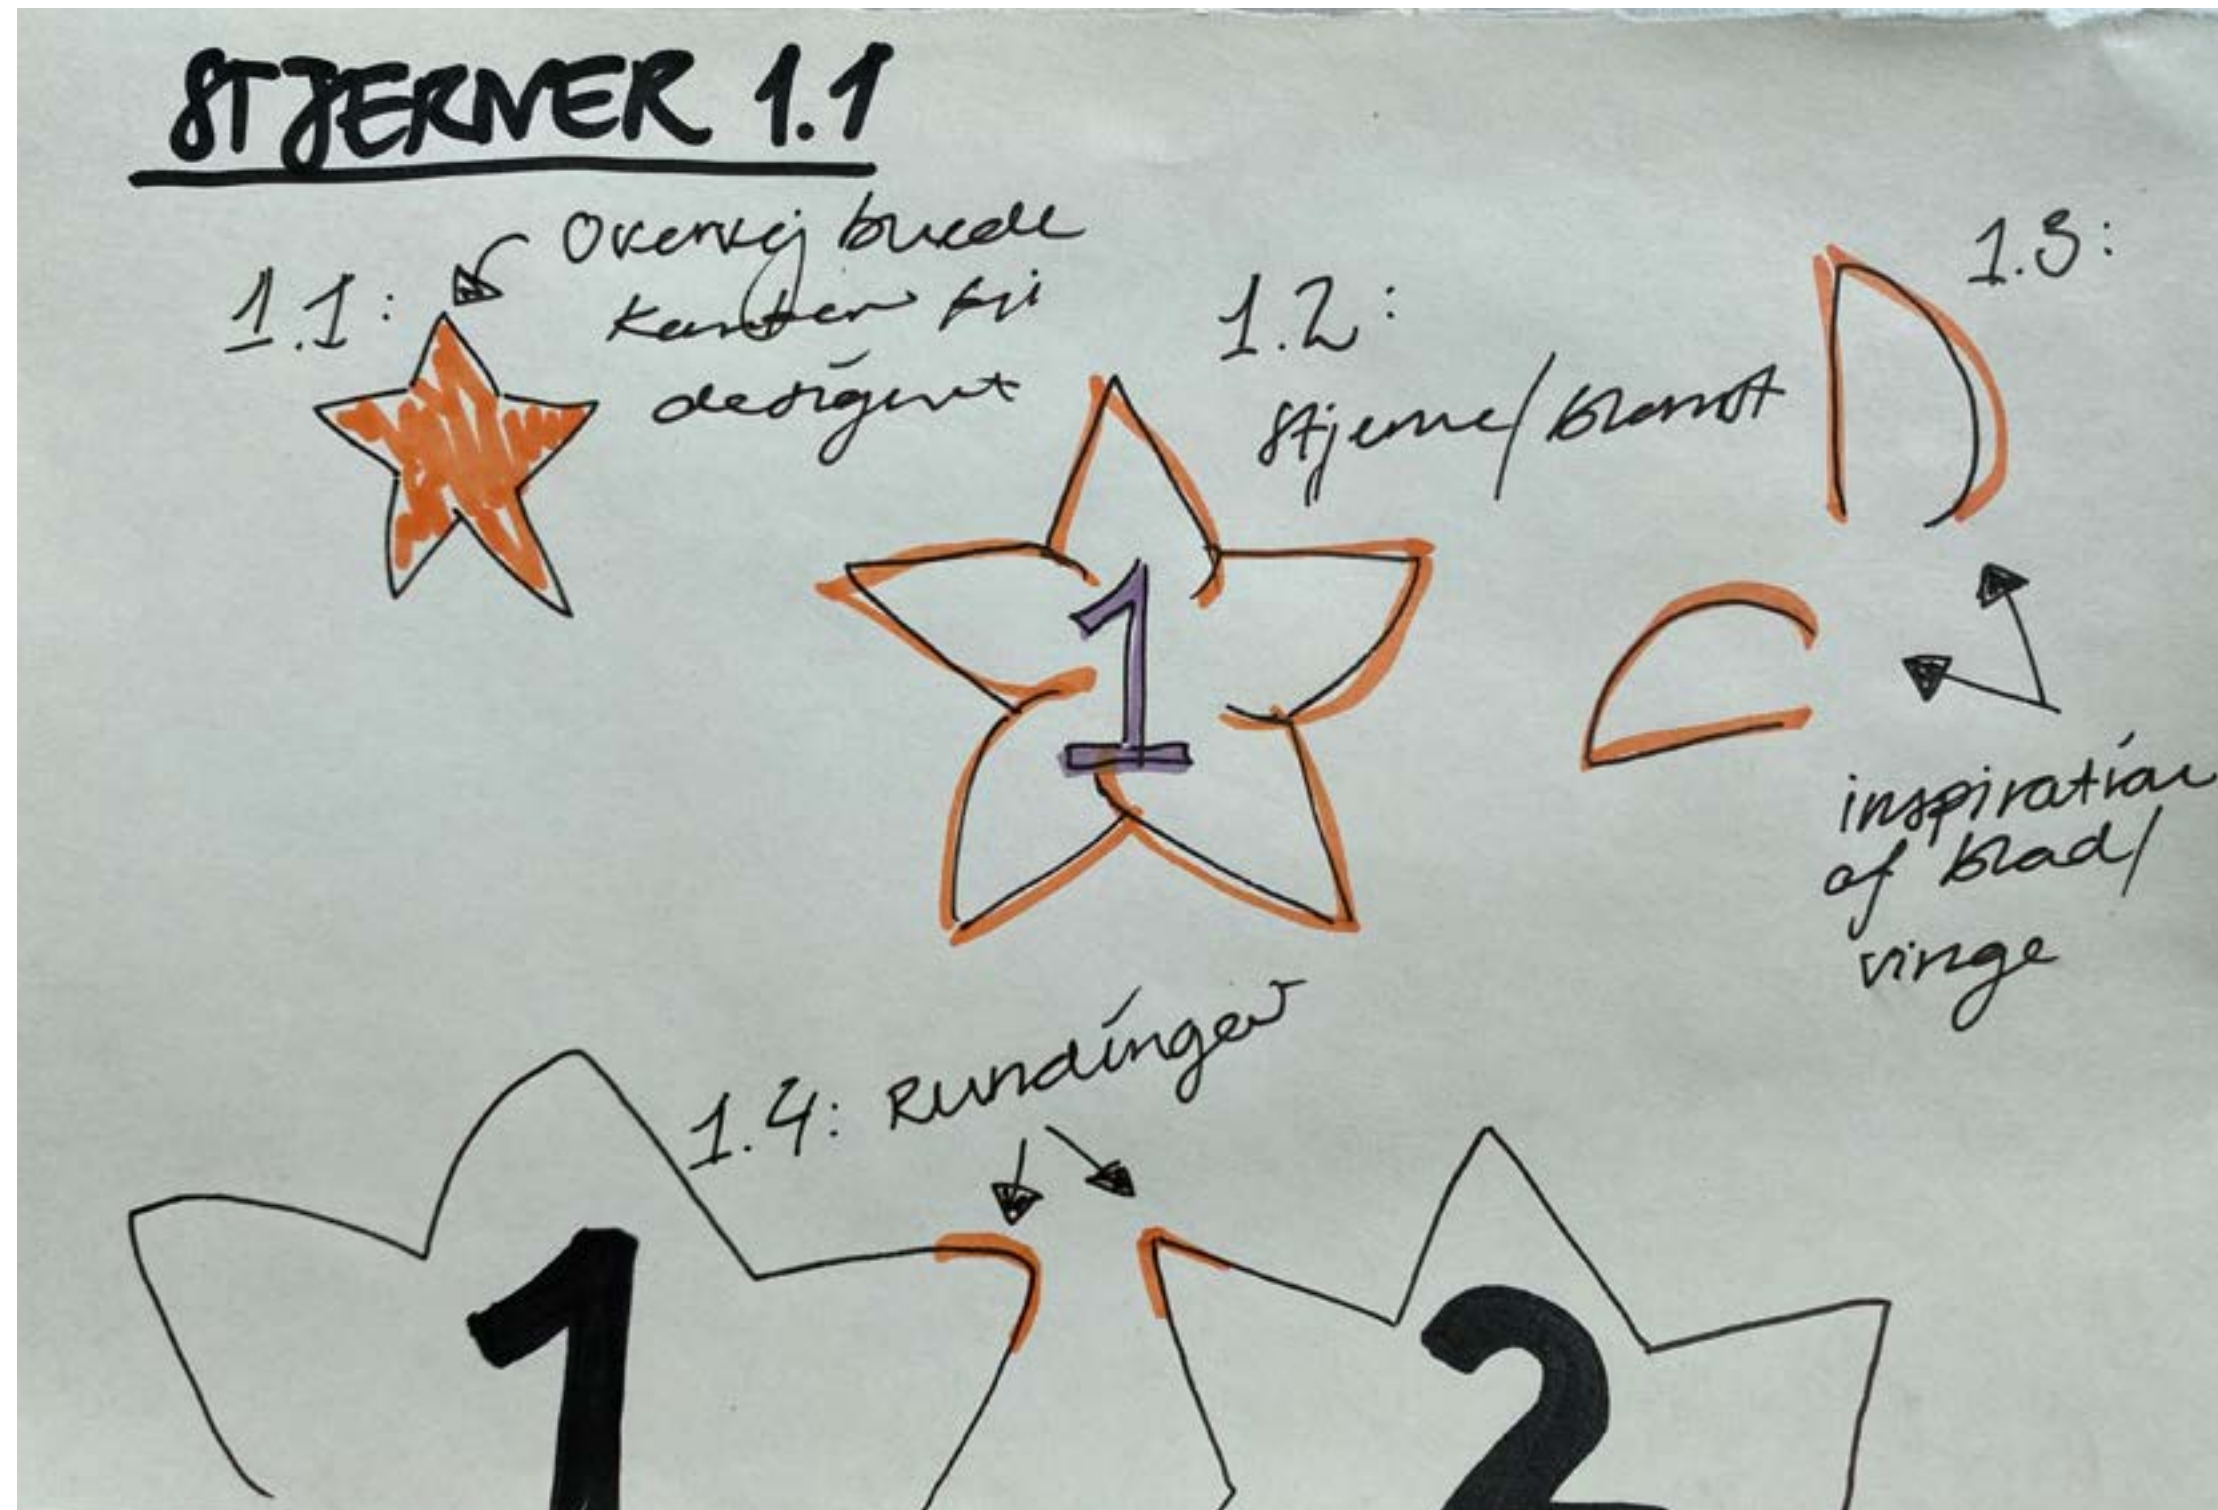 STJERNER 1.1
1.1:
Overvej buede
kanter til
designet
1.2:
Stjerne/blomst
1.3:
1
inspiration
af blad/
vinge
1.4: Rundinger
1
2